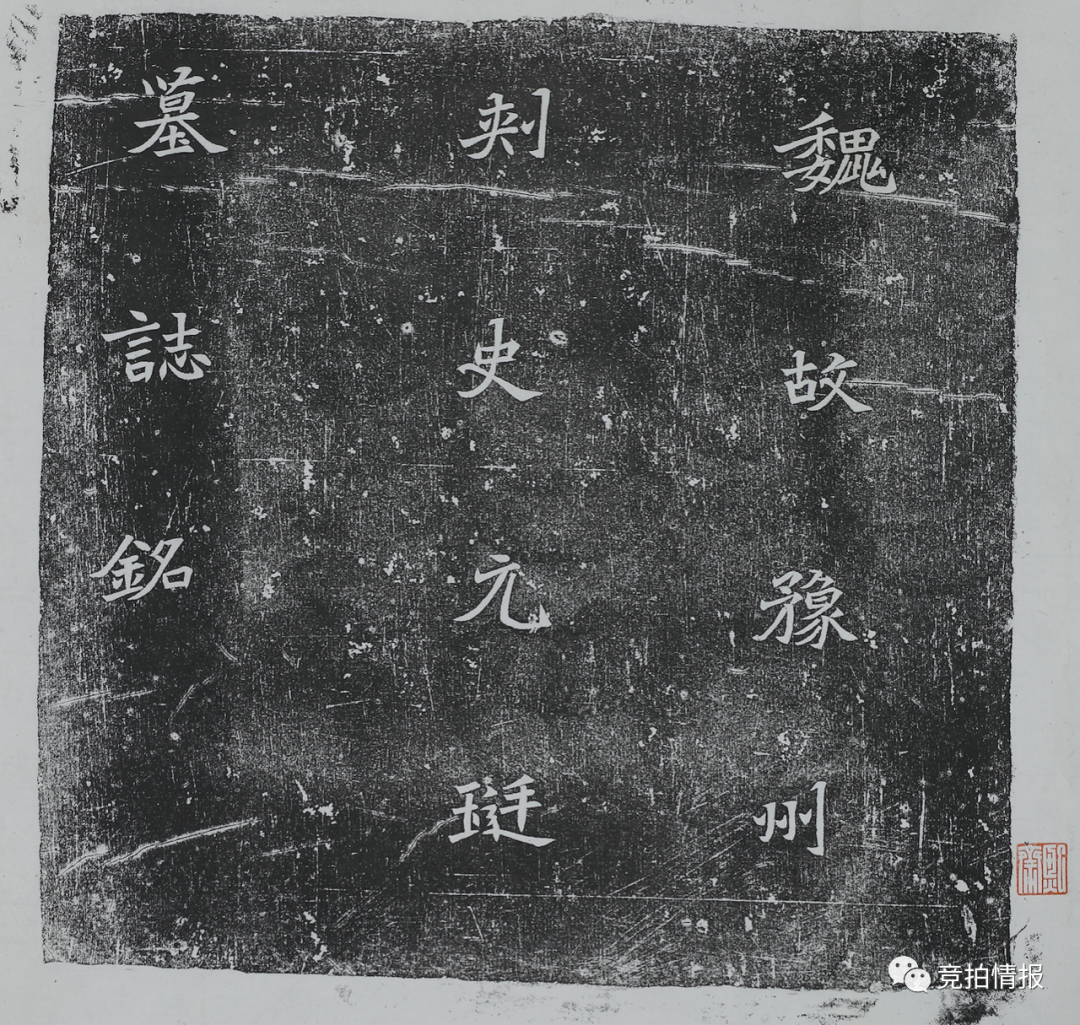 魏故豫州
刾史元珽
墓誌銘
竞拍情报